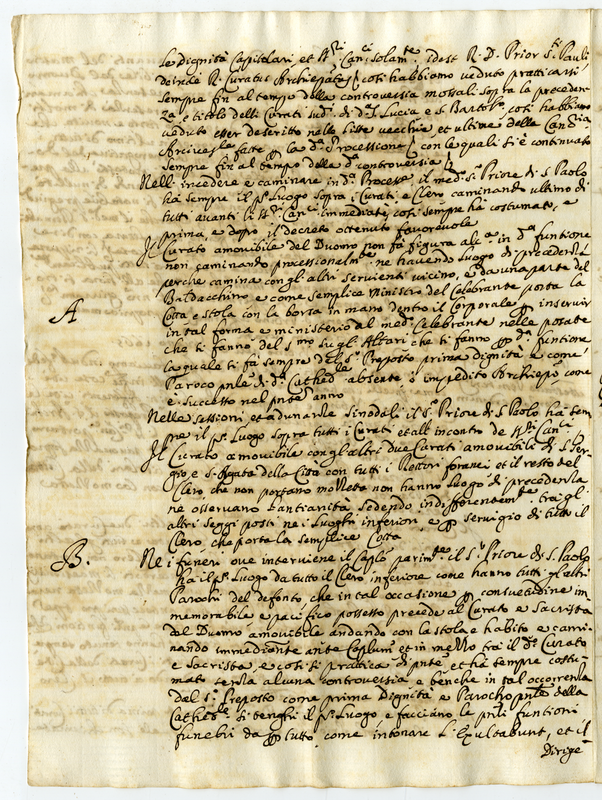 le dignità Capitolari et SS.ri Can.ci solam.te idest R. D. Prior S.ti Pauli
deinde R. Curatus Archiepat.s così habbiamo veduto pratticarsi
sempre fin al tempo della controversia mossali sopra la preceden
za, e titolo delli Curati sud.i di d.a S. Lucia e S. Bartol.o così habbiamo
veduto esser descritto nelle liste vecchie, et ultime della Canc.ria
Arcives.le fatte la d.a Processione con le quali si è continuato
sempre fin al tempo della d.a controversia
Nell'incedere e caminare in d.a Process.e il med.o S.r Priore di S. Paolo
hà sempre il p.o luogo sopra i Curati, e Clero caminando ultimo di
tutti avanti li SS.ri Can.ci immediatè, così sempre hà costumato, e
prima, e dopo il decreto ottenuto favorevole
Il Curato amovibile del Duomo non fà figura alc.a in d.a funtione
non caminando processionalm.te ne havendo luogo di precedenza
perche camina con gl'altri servienti vicino, e da una parte del
Baldacchino e come semplice Ministro del Celebrante porta la
A Cotta e stola con la borsa in mano dentro il Corporale inservir
in tal forma e ministerio al med.o Celebrante nelle posate
che si fanno del S.mo sugl'Altari che si fanno d.a funtione
la quale si fà sempre dal S.r Preposto prima dignità e come
Paroco p.nle di d.a Cathed.le absente, ò impedito Archiep.o come
è successo nel p.nte anno
Nelle sessioni et adunanze sinodali il S.r Priore di S. Paolo hà sem
pre il p.o luogo sopra tutti i Curati et all'incontro de SS.ri Can.ci
Il Curato amovibile con gl'altri due Curati amovibili di S. Ser
gio, e S. Agata della Città con tutti i Rettori foranei et il resto del
Clero, che non portano mozzetta non hanno luogo di precedenza
ne osservano l'antianità sedendo indifferentem.te trà gl'
altri seggi posti ne i luoghi inferiori e servigio di tutto il
Clero, che porta la semplice Cotta
B. Ne i funeri ove interviene il Caplo parim.te il S.r Priore di S. Paolo
hà il p.o luogo da tutto il Clero inferiore come hanno tutti gl'altri
Parochi del defonto, che in tal occasione consuetudine im
memorabile e pacifico possesso precede al Curato e Sacrista
del Duomo amovibile andando con la stola e habito e cami
nando immediatè ante Caplum et in mezzo trai il d.o Curato
e Sacrista, e così si prattica di p.nte, et hà sempre costu
mato senza alcuna controversia e benche in tal occorrenza
dal S.r Preposto come prima Dignità e Parocho p.nle della
Cathed.le si tenghi il p.o luogo e facciano le p.nli funtioni
funebri da tutto come intonare l'Exultabunt, et il
Dirige